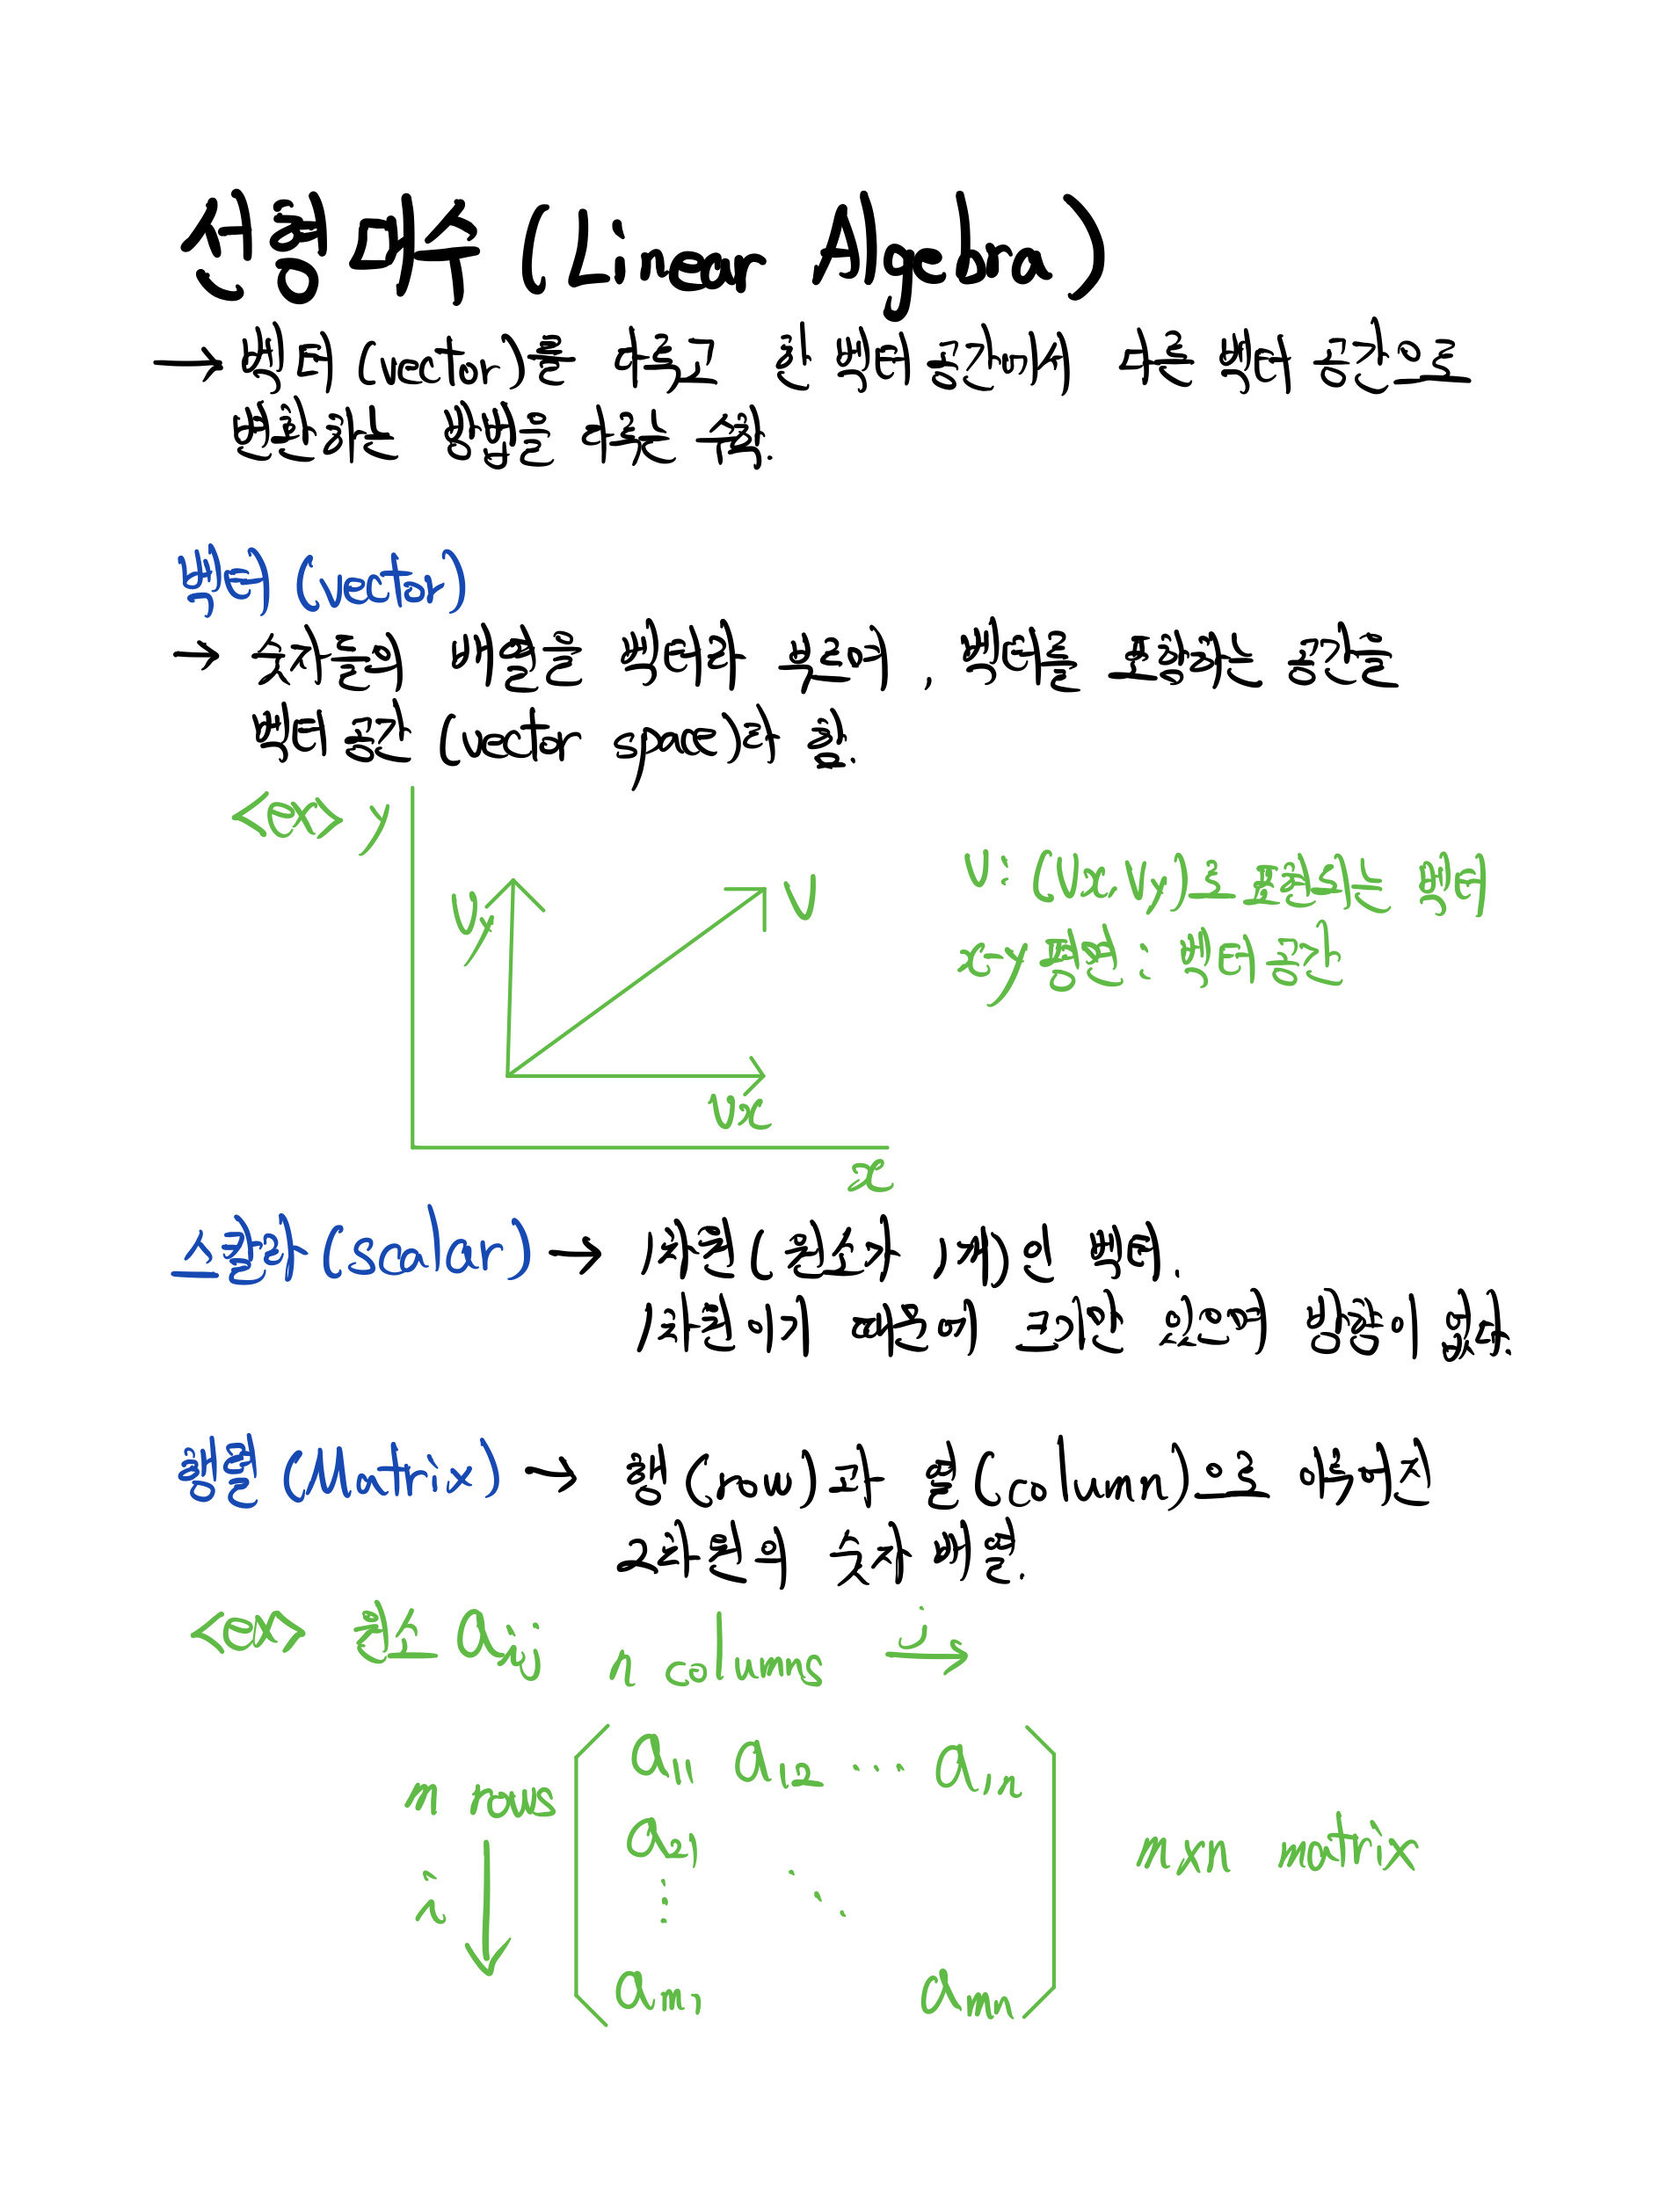 선형대수 (Linear Algebra)
→ 벡터 (vector)를 다루고 한 벡터 공간에서 다른 벡터 공간으로
변환하는 방법을 다루는 수학.
벡터 (vector)
→ 숫자들의 배열을 벡터라 부르며, 벡터를 포함하는 공간을
벡터 공간 (vector space)라 함.
<ex> y
Vy
V
V: (Vx, Vy)로 표현되는 벡터
x-y 평면 : 벡터 공간
Vx
x
스칼라 (scalar) → 1차원(원소가 1개)인 벡터.
1차원이기 때문에 크기만 있으며 방향이 없다.
행렬 (Matrix) → 행 (row)과 열 (column)으로 이루어진
2차원의 숫자 배열.
<ex> 원소 aij
n columns j →
m rows
i ↓
a11 a12 ⋯ a1n
a21
⋮ ⋱
am1 amn
m×n matrix